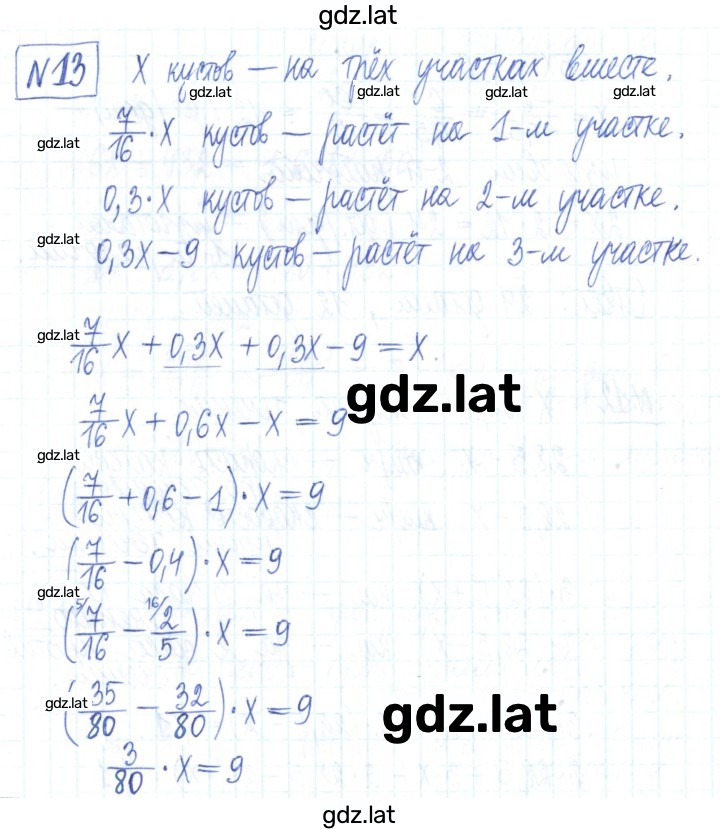 gdz.lat
№13 X кустов — на трёх участках вместе.
gdz.lat gdz.lat gdz.lat gdz.lat
gdz.lat 7/16 · X кустов — растёт на 1-м участке.
0,3 · X кустов — растёт на 2-м участке.
gdz.lat 0,3X − 9 кустов — растёт на 3-м участке.
gdz.lat 7/16 X + 0,3X + 0,3X − 9 = X.
gdz.lat
7/16 X + 0,6X − X = 9
gdz.lat
(7/16 + 0,6 − 1) · X = 9
(7/16 − 0,4) · X = 9
gdz.lat
(5/ 7/16 − 16/ 2/5) · X = 9
gdz.lat (35/80 − 32/80) · X = 9 gdz.lat
3/80 · X = 9
gdz.lat